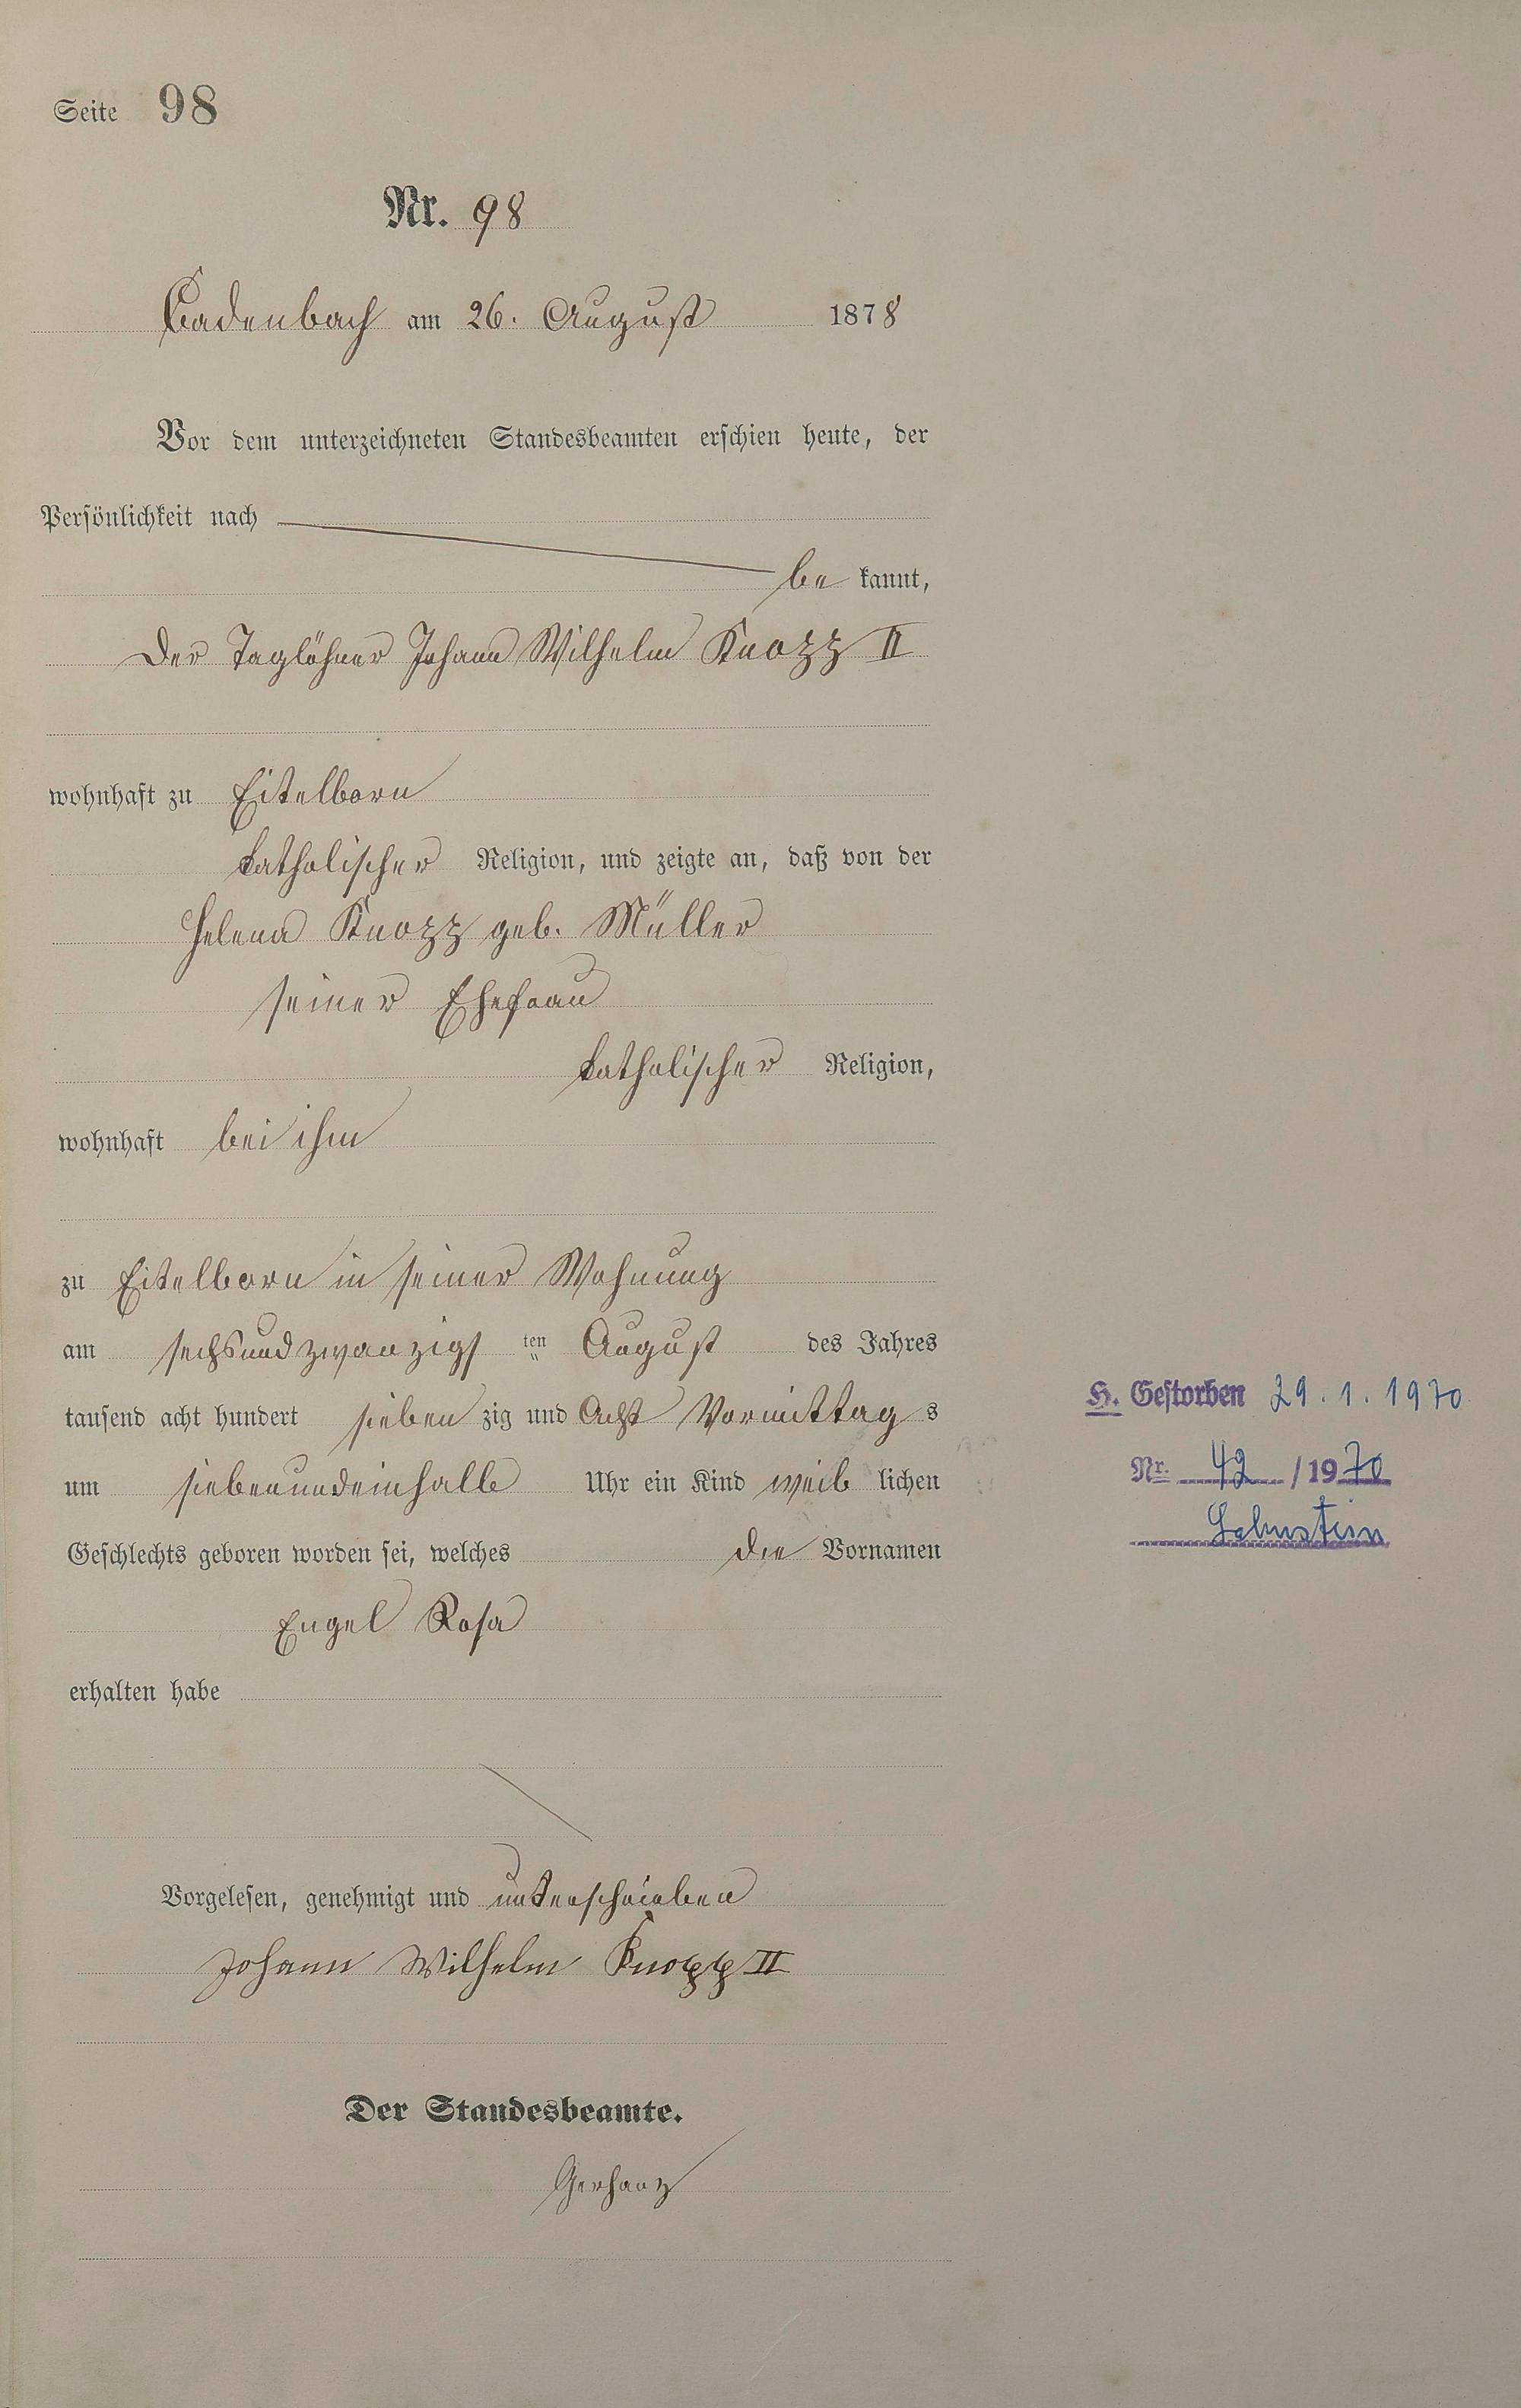 Seite 98
Nr. 98
Cadenbach am 26. August 1878
Vor dem unterzeichneten Standesbeamten erschien heute, der
Persönlichkeit nach
be kannt,
der Taglöhner Johann Wilhelm Knopp II
wohnhaft zu Eitelborn
katholischer Religion, und zeigte an, daß von der
Helena Knopp geb. Müller
seiner Ehefrau
katholischer Religion,
wohnhaft bei ihm
zu Eitelborn in seiner Wohnung
am sechsundzwanzigs ten August des Jahres
tausend acht hundert sieben zig und Acht Vormittag s
um siebenundeinhalb Uhr ein Kind weib lichen
Geschlechts geboren worden sei, welches die Vornamen
Engel Rosa
erhalten habe
Vorgelesen, genehmigt und unterschrieben
Johann Wilhelm Knopp II
Der Standesbeamte.
Gerharz
H. Gestorben 29.1.1970
Nr. 42 /1970
Lahnstein